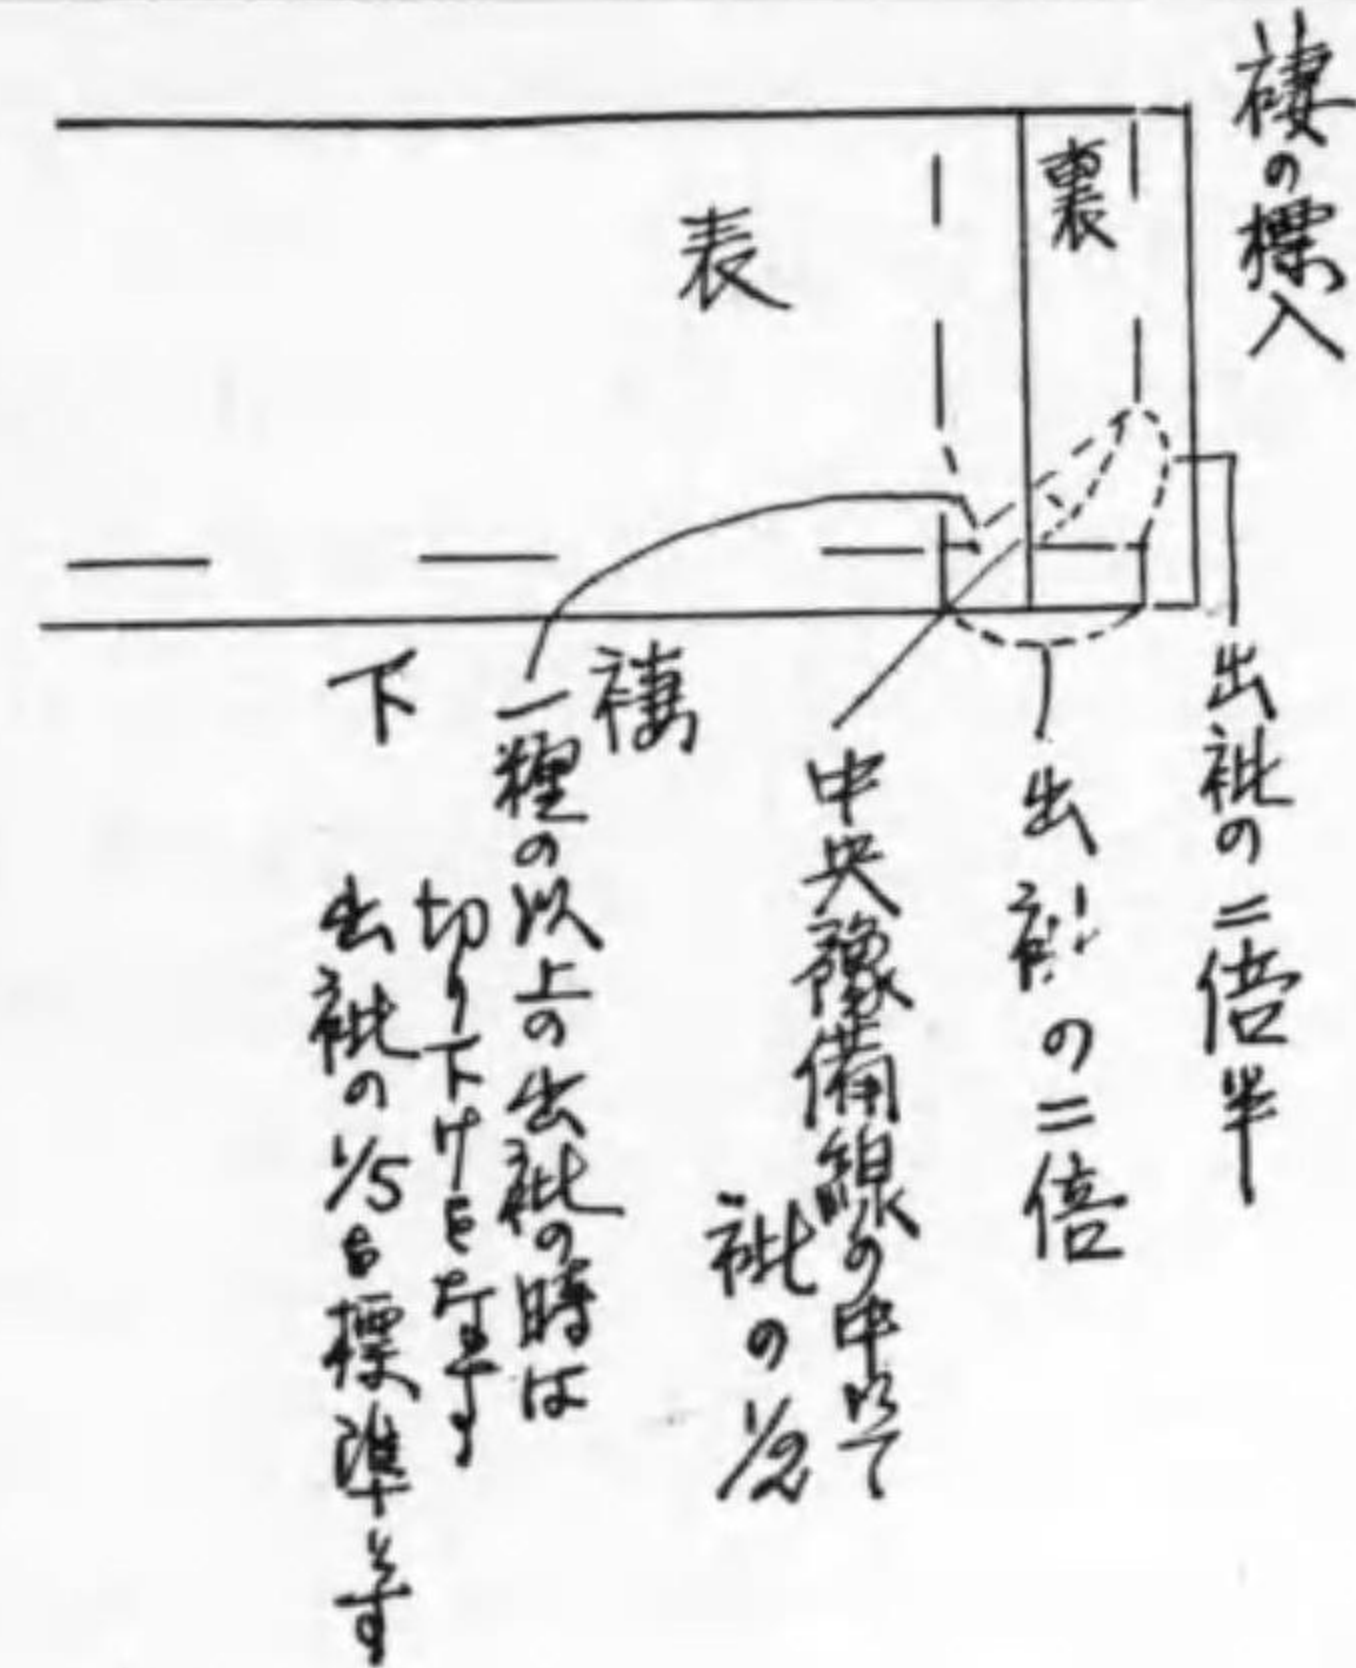 褄の標入
裏
表
出袘の二倍半
出袘の二倍
中央豫備線の中にて
袘の1/2
褄下
一糎の以上の出袘の時は
切り下けをなす
出袘の1/5を標準とす